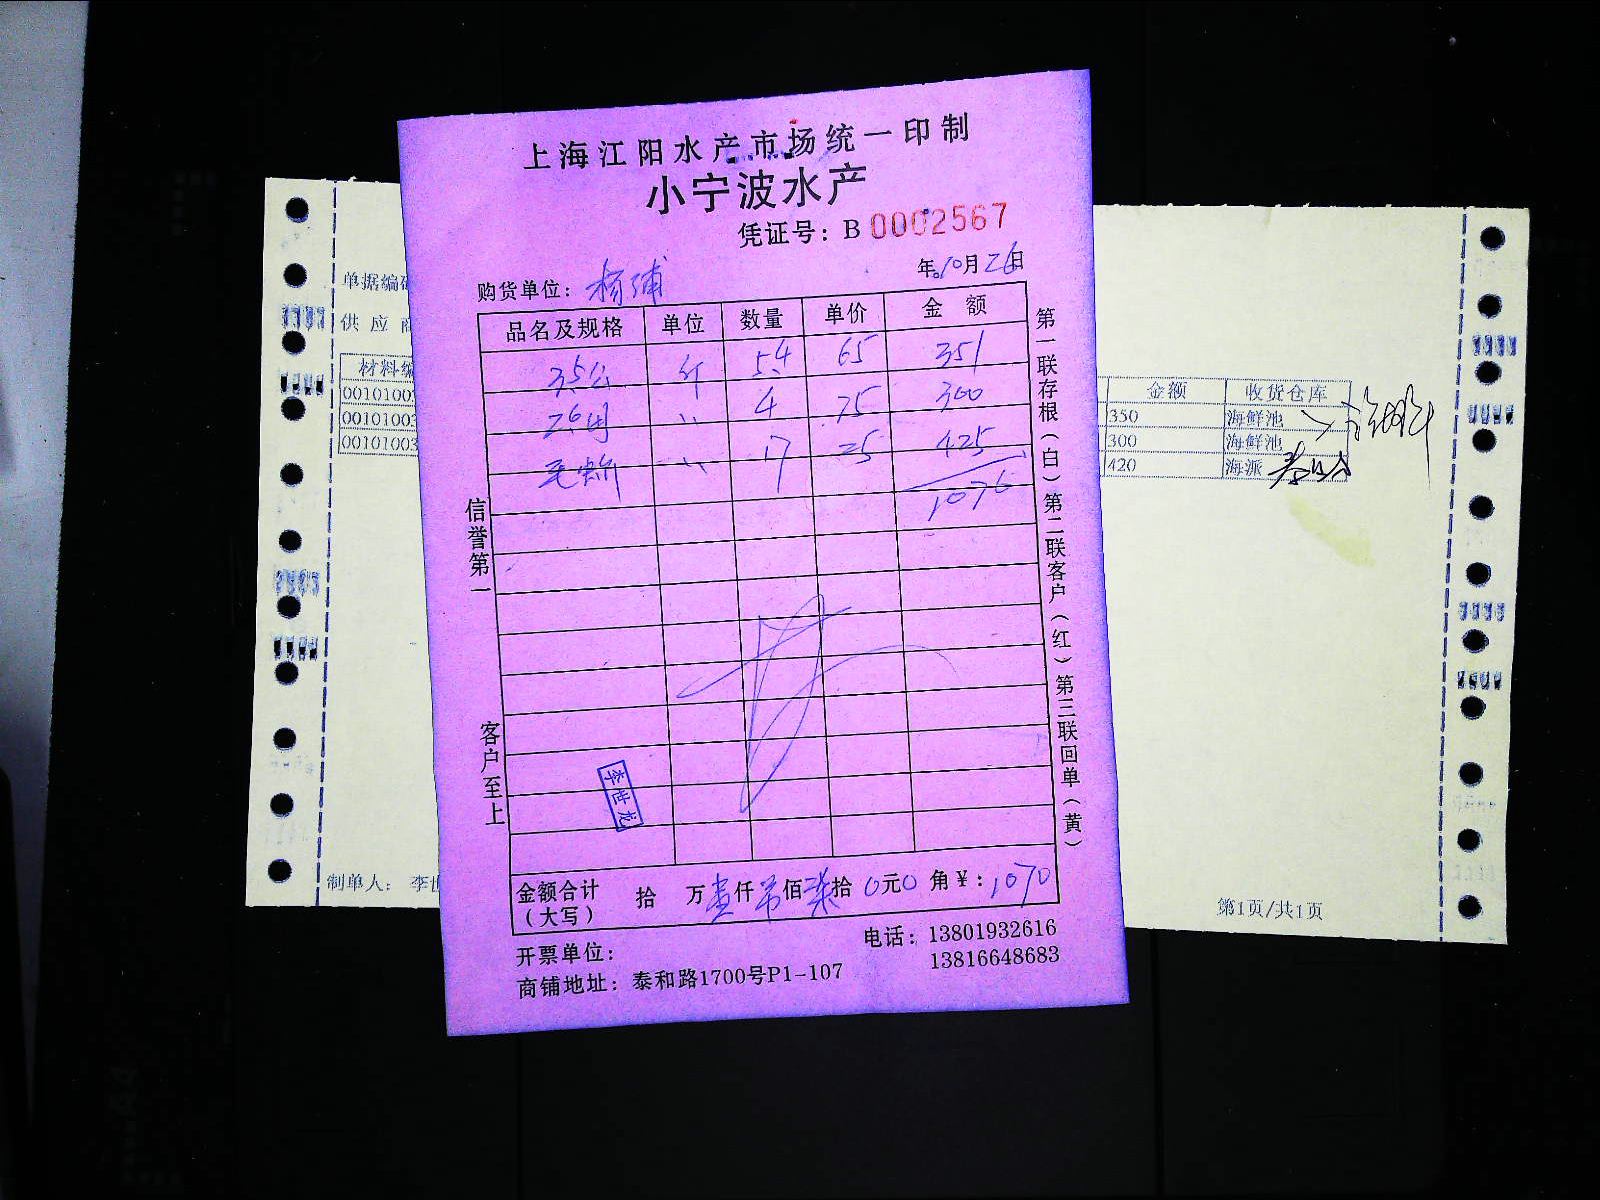 上海江阳水产市场统一印制
小宁波水产
凭证号：B 0002567
购货单位：杨浦 年10月26日
品名及规格 单位 数量 单价 金额
3.5公 斤 5.4 65 351
2.6母 〃 4 75 300
毛蚧 〃 17 25 425
1076
信誉第一
客户至上
第一联存根（白）第二联客户（红）第三联回单（黄）
李世龙
金额合计（大写） 拾 万壹仟零佰柒拾0元0角￥：1070
开票单位：
电话：13801932616
13816648683
商铺地址：泰和路1700号P1-107
单据编码
供应商
材料编
0010100
0010100
00101003
制单人：李世
金额 收货仓库
350 海鲜池
300 海鲜池
420 海派
第1页/共1页